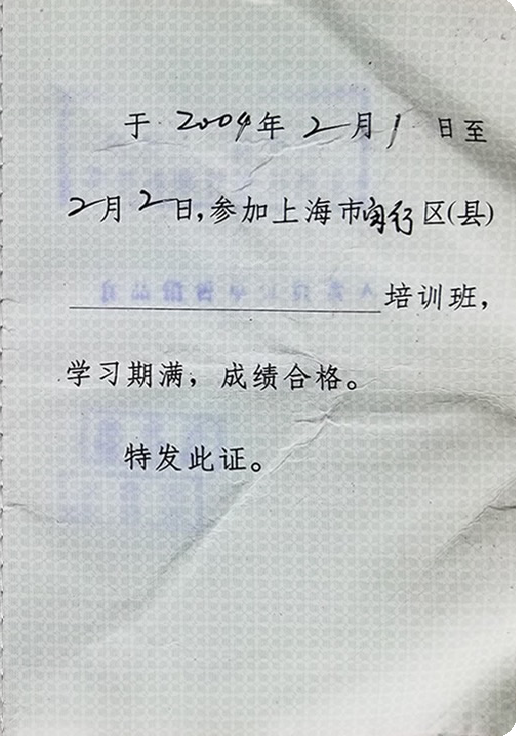 于 2004年 2月1 日至
2月2日，参加上海市闵行区(县)
培训班，
学习期满，成绩合格。
特发此证。